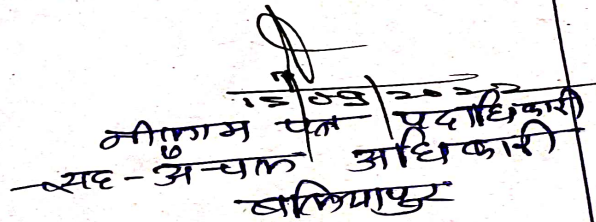 15/09/2022
नीलाम पत्र पदाधिकारी
-सह-अंचल अधिकारी
बलियापुर